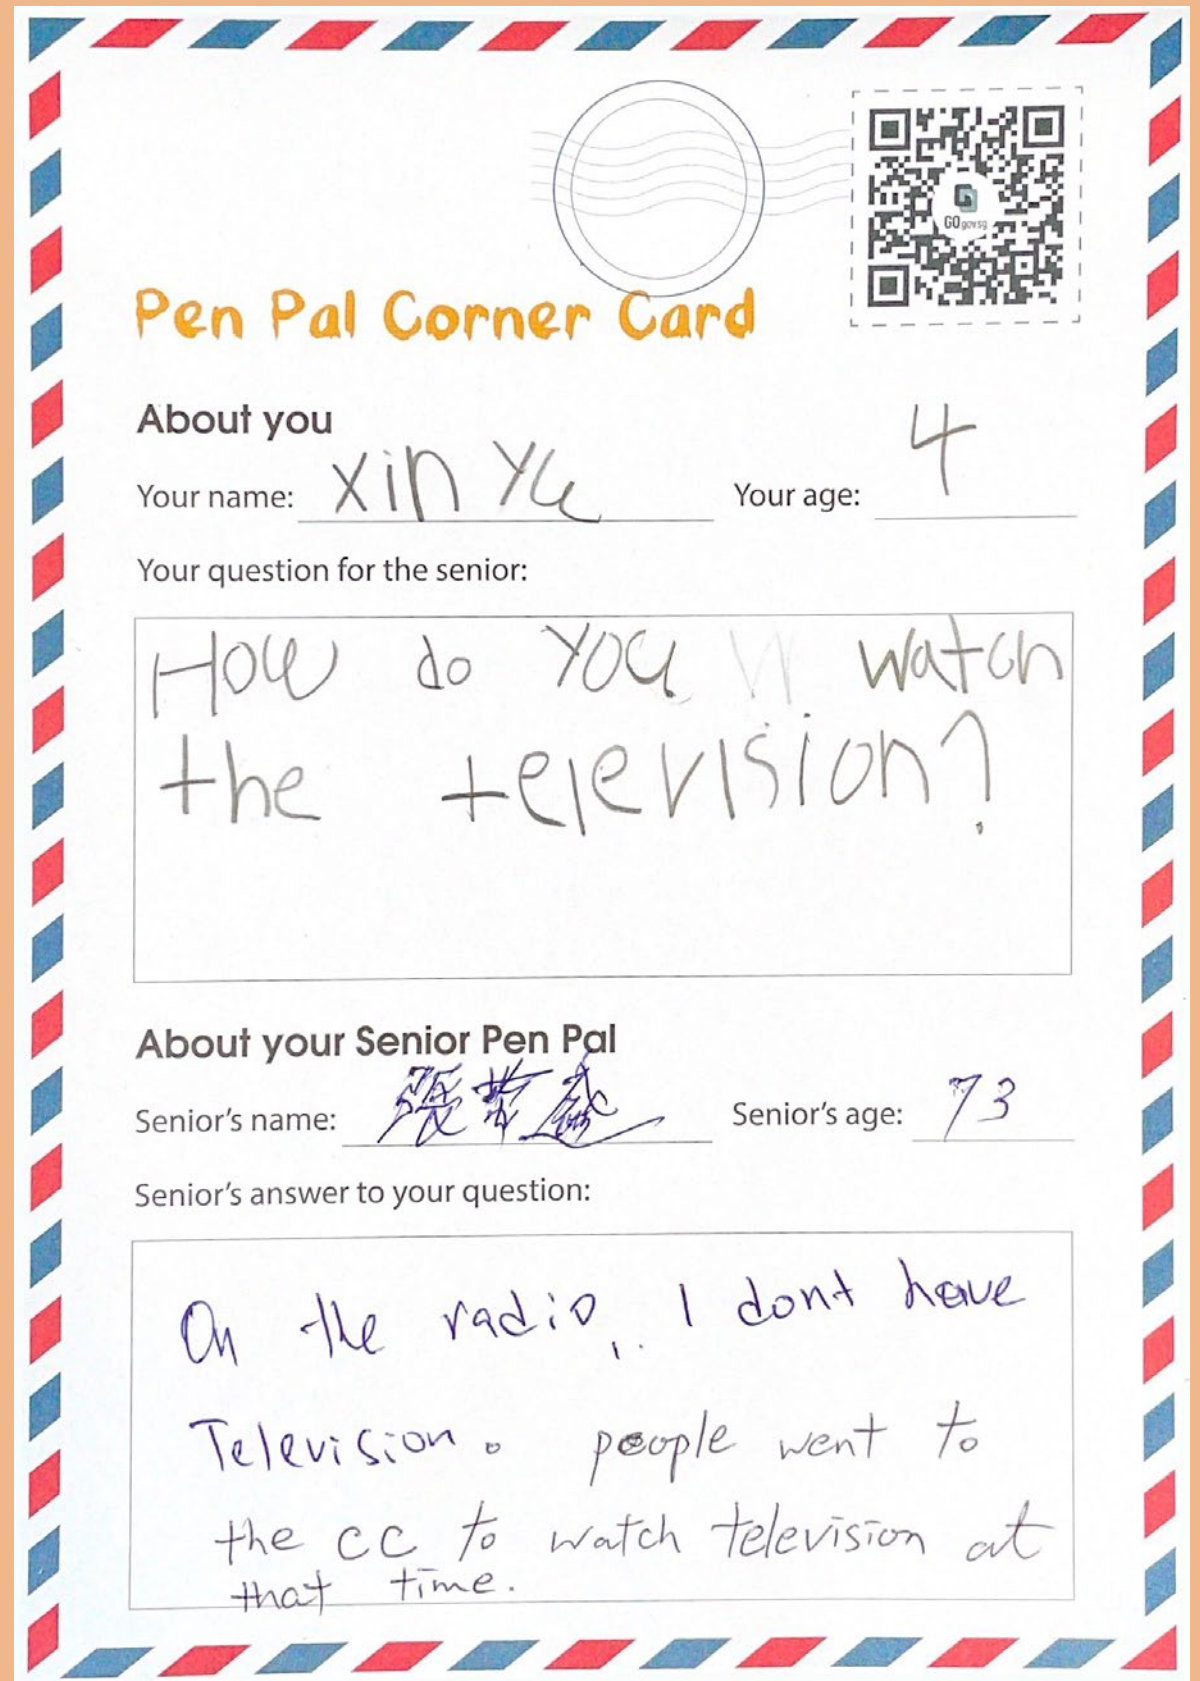 GOgovsg
Pen Pal Corner Card
About you
Your name: Xin Yu Your age: 4
Your question for the senior:
How do you W watch
the television?
About your Senior Pen Pal
Senior's name: 張 盛 Senior's age: 73
Senior's answer to your question:
On the radio, I dont have
Television. people went to
the cc to watch television at
that time.